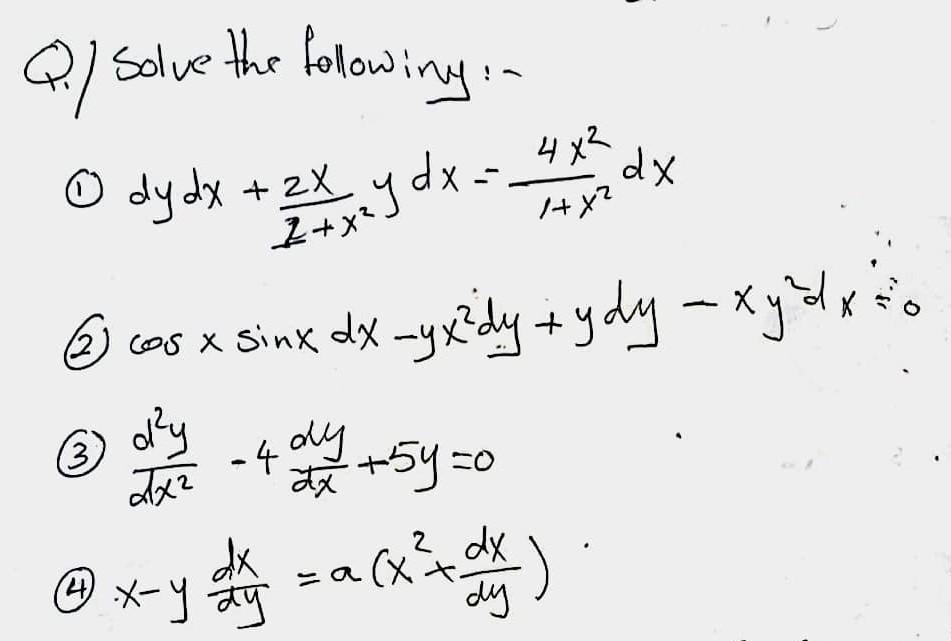 Q./ Solve the following :-
① dy dx + 2x/(2+x²) y dx = 4x²/(1+x²) dx
② cos x sinx dx - yx²dy + y dy - xy²dx = 0
③ d²y/dx² - 4 dy/dx + 5y = 0
④ x-y dx/dy = a (x² + dx/dy)